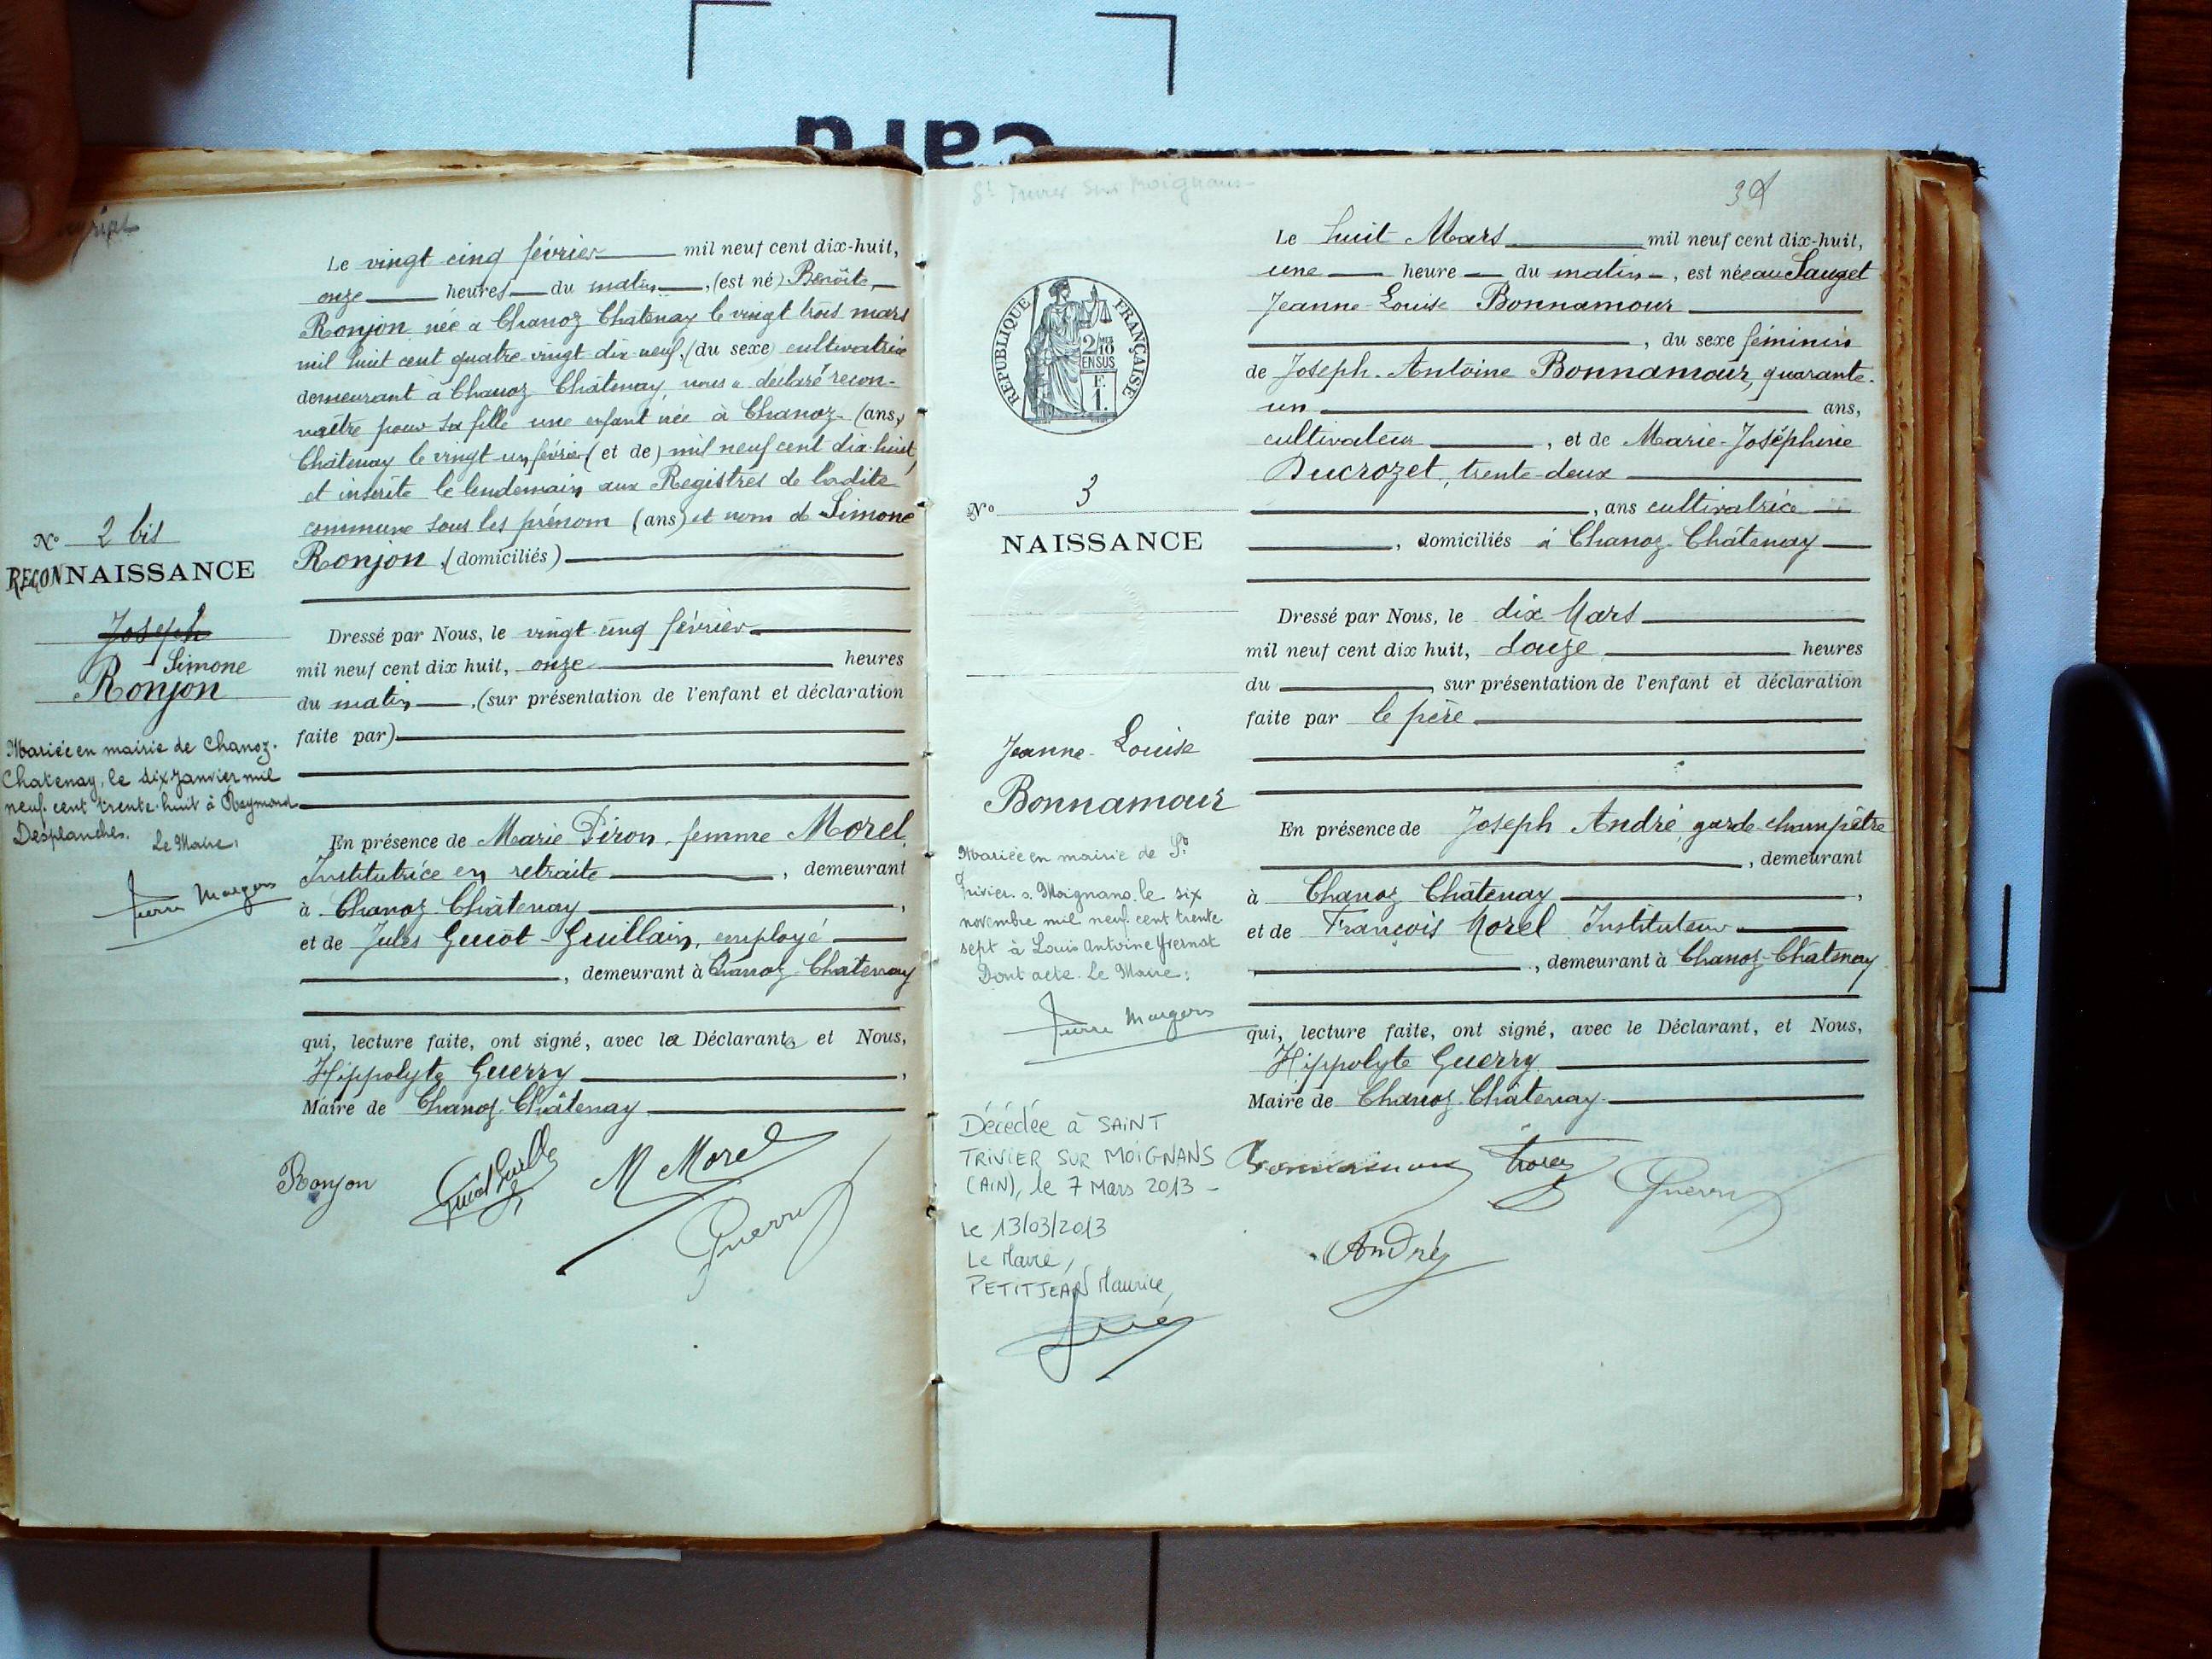 card
Le vingt cinq février mil neuf cent dix-huit,
onze heures du matin, (est né) Benoîte
Ronjon née à Chanoz Chatenay le vingt trois mars
mil huit cent quatre vingt dix neuf, (du sexe) cultivatrice
demeurant à Chanoz Châtenay, nous a declaré recon-
naître pour sa fille une enfant née à Chanoz- (ans,)
Châtenay le vingt un février (et de) mil neuf cent dix huit,
et inscrite le lendemain aux Registres de ladite
commune sous les prénom (ans) et nom de Simone
Ronjon. (domiciliés)
No 2 bis
RECONNAISSANCE
Joseph
Simone
Ronjon
Mariée en mairie de Chanoz-
Chatenay, le dix janvier mil
neuf cent trente-huit à Raymond
Desplanches. Le Maire,
Pierre Maugers
Dressé par Nous, le vingt-cinq février
mil neuf cent dix huit, onze heures
du matin, (sur présentation de l'enfant et déclaration
faite par)
En présence de Marie Piron, femme Morel,
Institutrice en retraite, demeurant
à Chanoz-Châtenay,
et de Jules Guiot-Guillain, employé
, demeurant à Chanoz-Châtenay
qui, lecture faite, ont signé, avec la Déclarante et Nous,
Hippolyte Guerry,
Maire de Chanoz-Châtenay
Ronjon
M Morel
Guerry
St Trivier sur Moignans
RÉPUBLIQUE FRANÇAISE
2/10
EN SUS
F.
1.
No 3
NAISSANCE
Jeanne-Louise
Bonnamour
Mariée en mairie de St
Trivier s. Moignans, le six
novembre mil neuf cent trente
sept à Louis Antoine
Dont acte. Le Maire:
Pierre Maugers
Décédée à SAINT
TRIVIER SUR MOIGNANS
(AIN), le 7 Mars 2013 -
Le 13/03/2013
Le Maire,
PETITJEAN Maurice,
Le huit Mars mil neuf cent dix-huit,
une heure du matin, est née au Sauget
Jeanne-Louise Bonnamour
, du sexe féminin
de Joseph-Antoine Bonnamour, quarante-
un ans,
cultivateur, et de Marie-Joséphine
Ducrozet, trente-deux
, ans cultivatrice
, domiciliés à Chanoz-Châtenay
Dressé par Nous, le dix Mars
mil neuf cent dix huit, douze heures
du , sur présentation de l'enfant et déclaration
faite par le père
En présence de Joseph André, garde-champêtre
, demeurant
à Chanoz Châtenay,
et de François Morel Instituteur
, demeurant à Chanoz-Châtenay
qui, lecture faite, ont signé, avec le Déclarant, et Nous,
Hippolyte Guerry
Maire de Chanoz-Châtenay.
Bonnamour Morel Guerry
André